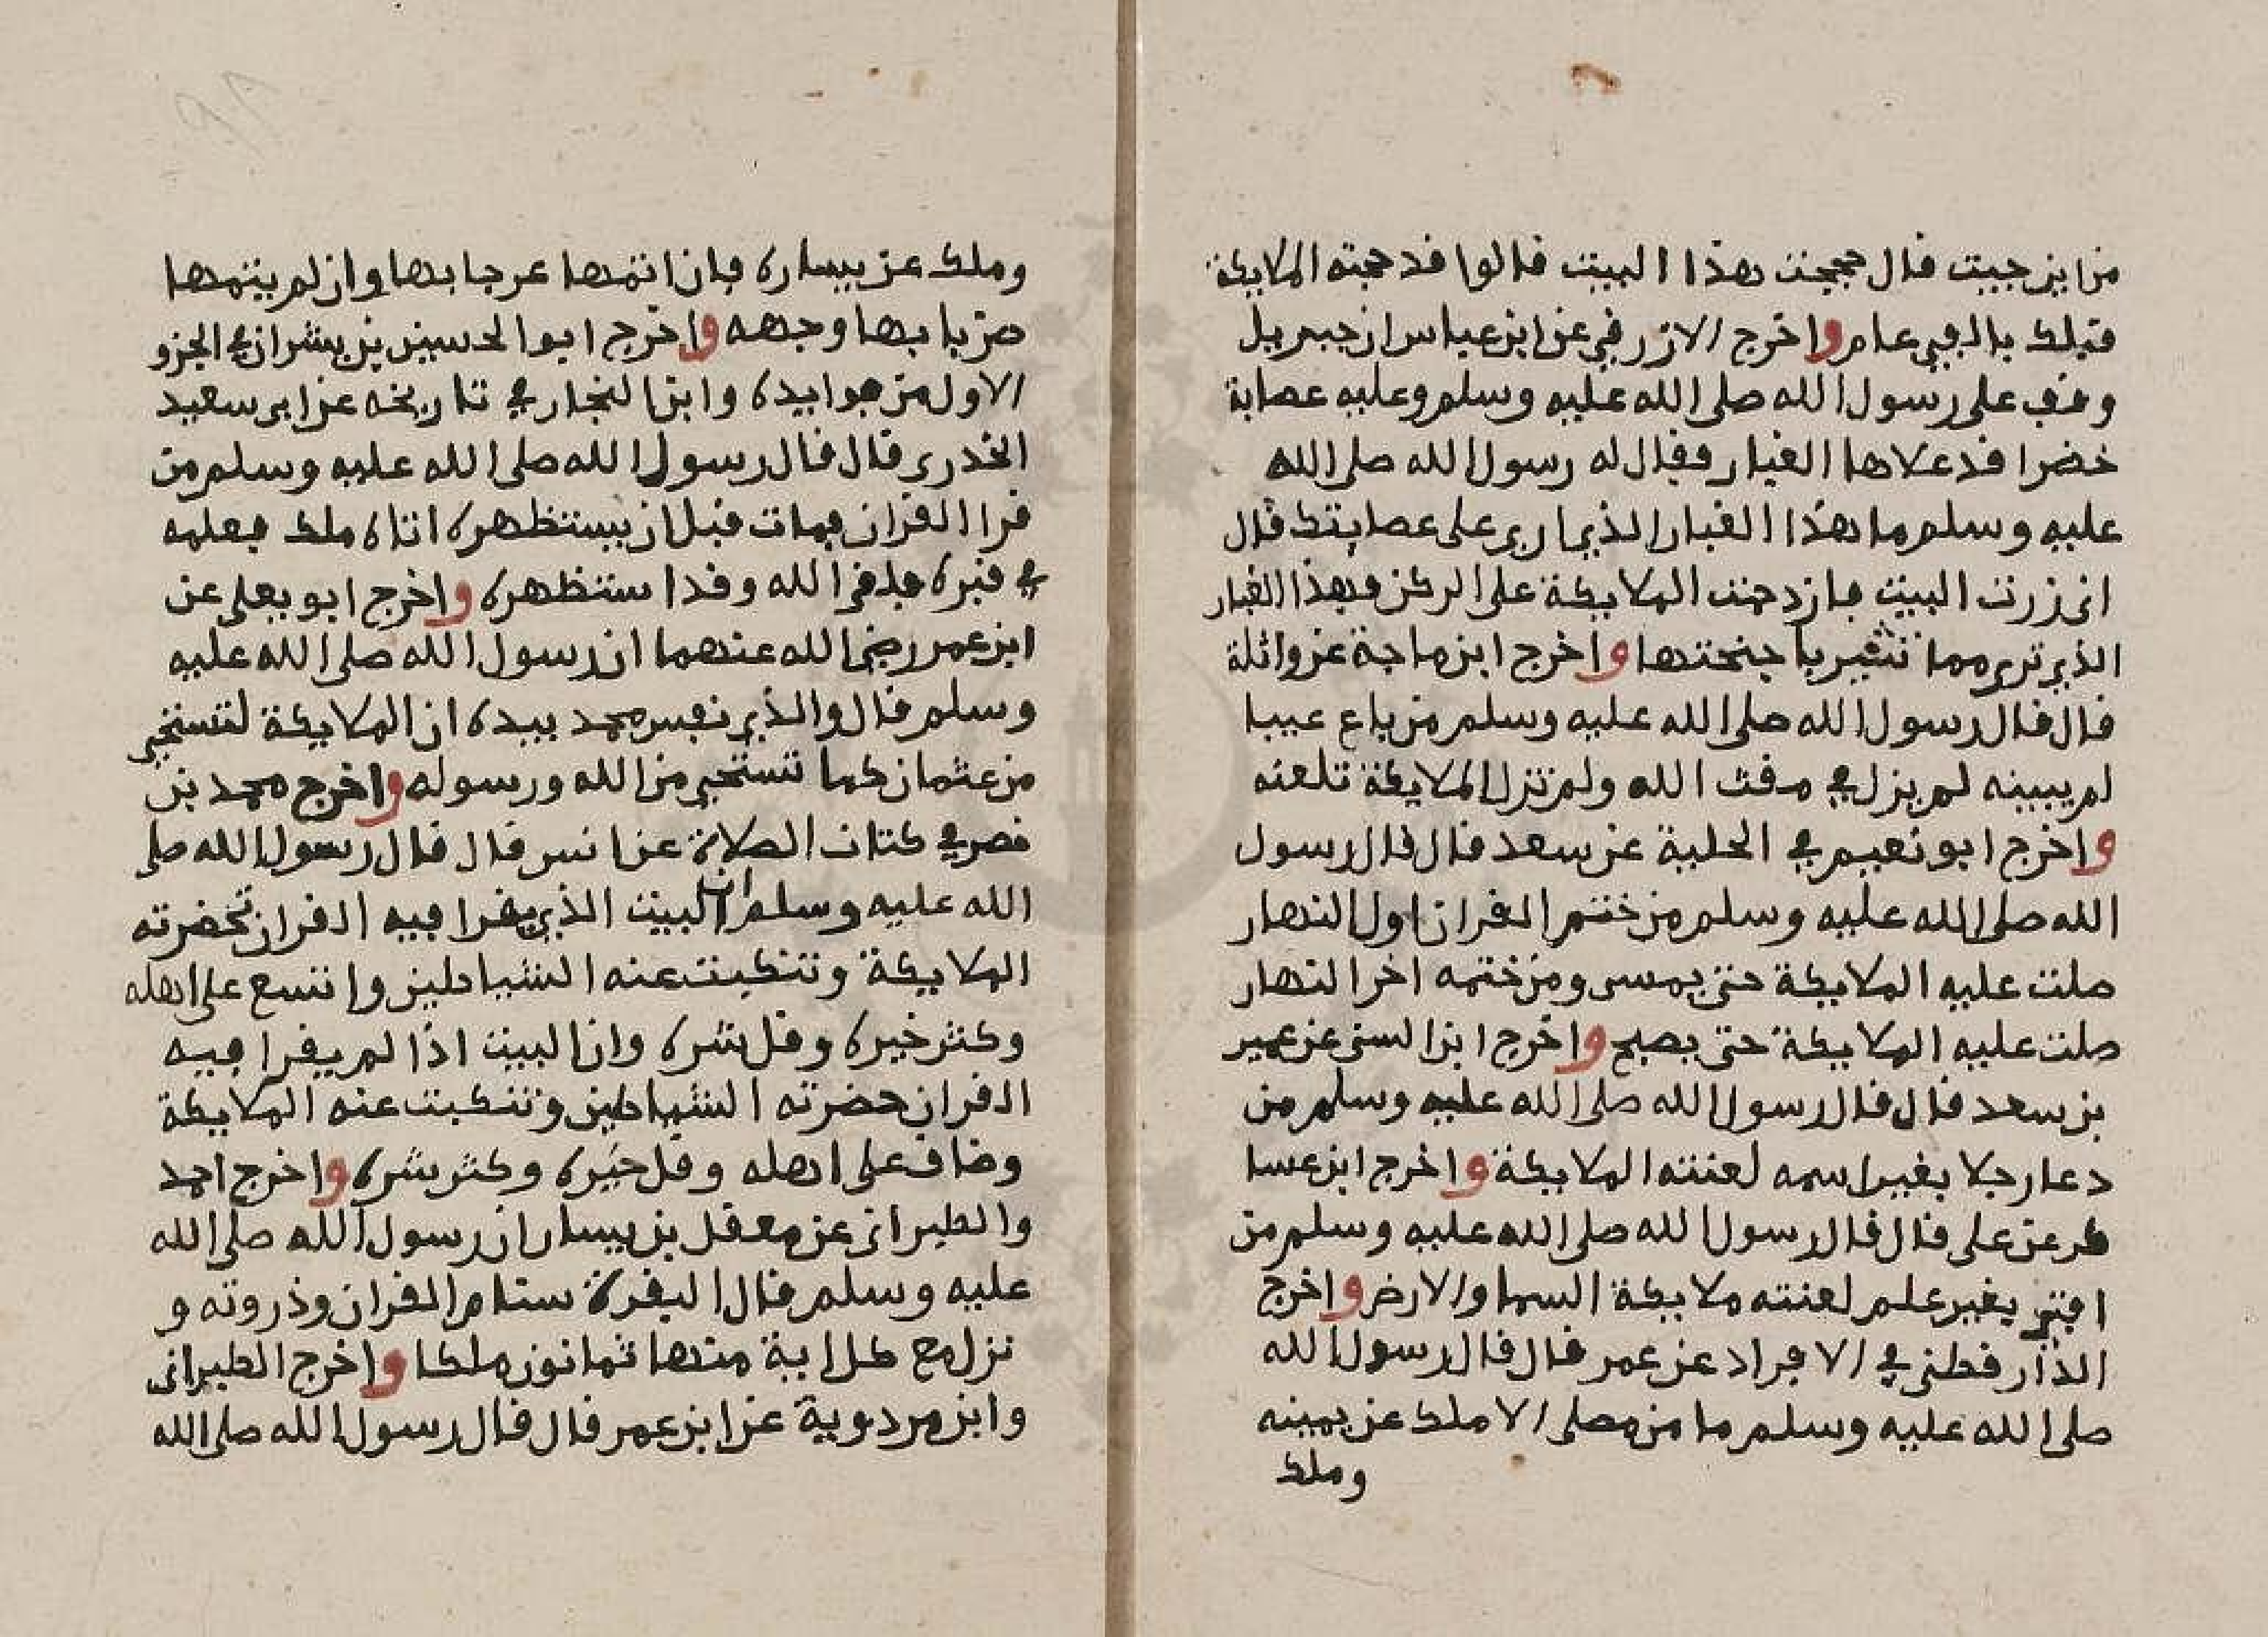 من اين جيت قال حججت هذا البيت قالوا قد حجته الملايكة
قبلك بالفي عام واخرج الازرقي عن ابن عباس ان جبريل
وقف على رسول الله صلى الله عليه وسلم وعليه عصابة
خضرا قد علاها الغبار فقال له رسول الله صلى الله
عليه وسلم ما هذا الغبار الذي ارى على عصابتك قال
انى زرت البيت فازدحمت الملايكة على الركن فهذا الغبار
الذي ترى مما تثير باجنحتها واخرج ابن ماجة عن واثلة
قال قال رسول الله صلى الله عليه وسلم من باع عيبا
لم يبينه لم يزل في مقت الله ولم تزل الملايكة تلعنه
واخرج ابو نعيم في الحلية عن سعد قال قال رسول
الله صلى الله عليه وسلم من ختم القران اول النهار
صلت عليه الملايكة حتى يمسى ومن ختمه اخر النهار
صلت عليه الملايكة حتى يصبح واخرج ابن السنى عن عمير
بن سعد قال قال رسول الله صلى الله عليه وسلم من
دعا رجلا بغير اسمه لعنته الملايكة واخرج ابن عسا
كر عن على قال قال رسول الله صلى الله عليه وسلم من
افتى بغير علم لعنته ملايكة السما والارض واخرج
الدار قطني في الافراد عن عمر قال قال رسول الله
صلى الله عليه وسلم ما من مصلى الا ملك عن يمينه
وملك
وملك عن يساره فان اتمها عرجا بها وان لم يتمها
ضربا بها وجهه واخرج ابوا الحسين بن بشران في الجزو
الاول من فوايده وابن النجار في تاريخه عن ابى سعيد
الخدرى قال قال رسول الله صلى الله عليه وسلم من
قرا القران فمات قبل ان يستظهره اتاه ملك فعلمه
في قبره فلقى الله وقد استظهره واخرج ابو يعلى عن
ابن عمر رضى الله عنهما ان رسول الله صلى الله عليه
وسلم قال والذي نفس محمد بيده ان الملايكة لتستحيى
من عثمان كما تستحيى من الله ورسوله واخرج محمد بن
نصر في كتاب الصلاة عن انس قال قال رسول الله صلى
الله عليه وسلم ان البيت الذي يقرا فيه القران تحضرته
الملايكة وتنكبت عنه الشياطين واتسع على اهله
وكثر خيره وقل شره وان البيت اذا لم يقرا فيه
القران حضرته الشياطين وتنكبت عنه الملايكة
وضاق على اهله وقل خيره وكثر شره واخرج احمد
والطبرانى عن معقل بن يسار ان رسول الله صلى الله
عليه وسلم قال البقرة سنام القران وذروته و
نزل مع كل اية منها ثمانون ملكا واخرج الطبرانى
وابن مردوية عن ابن عمر قال قال رسول الله صلى الله